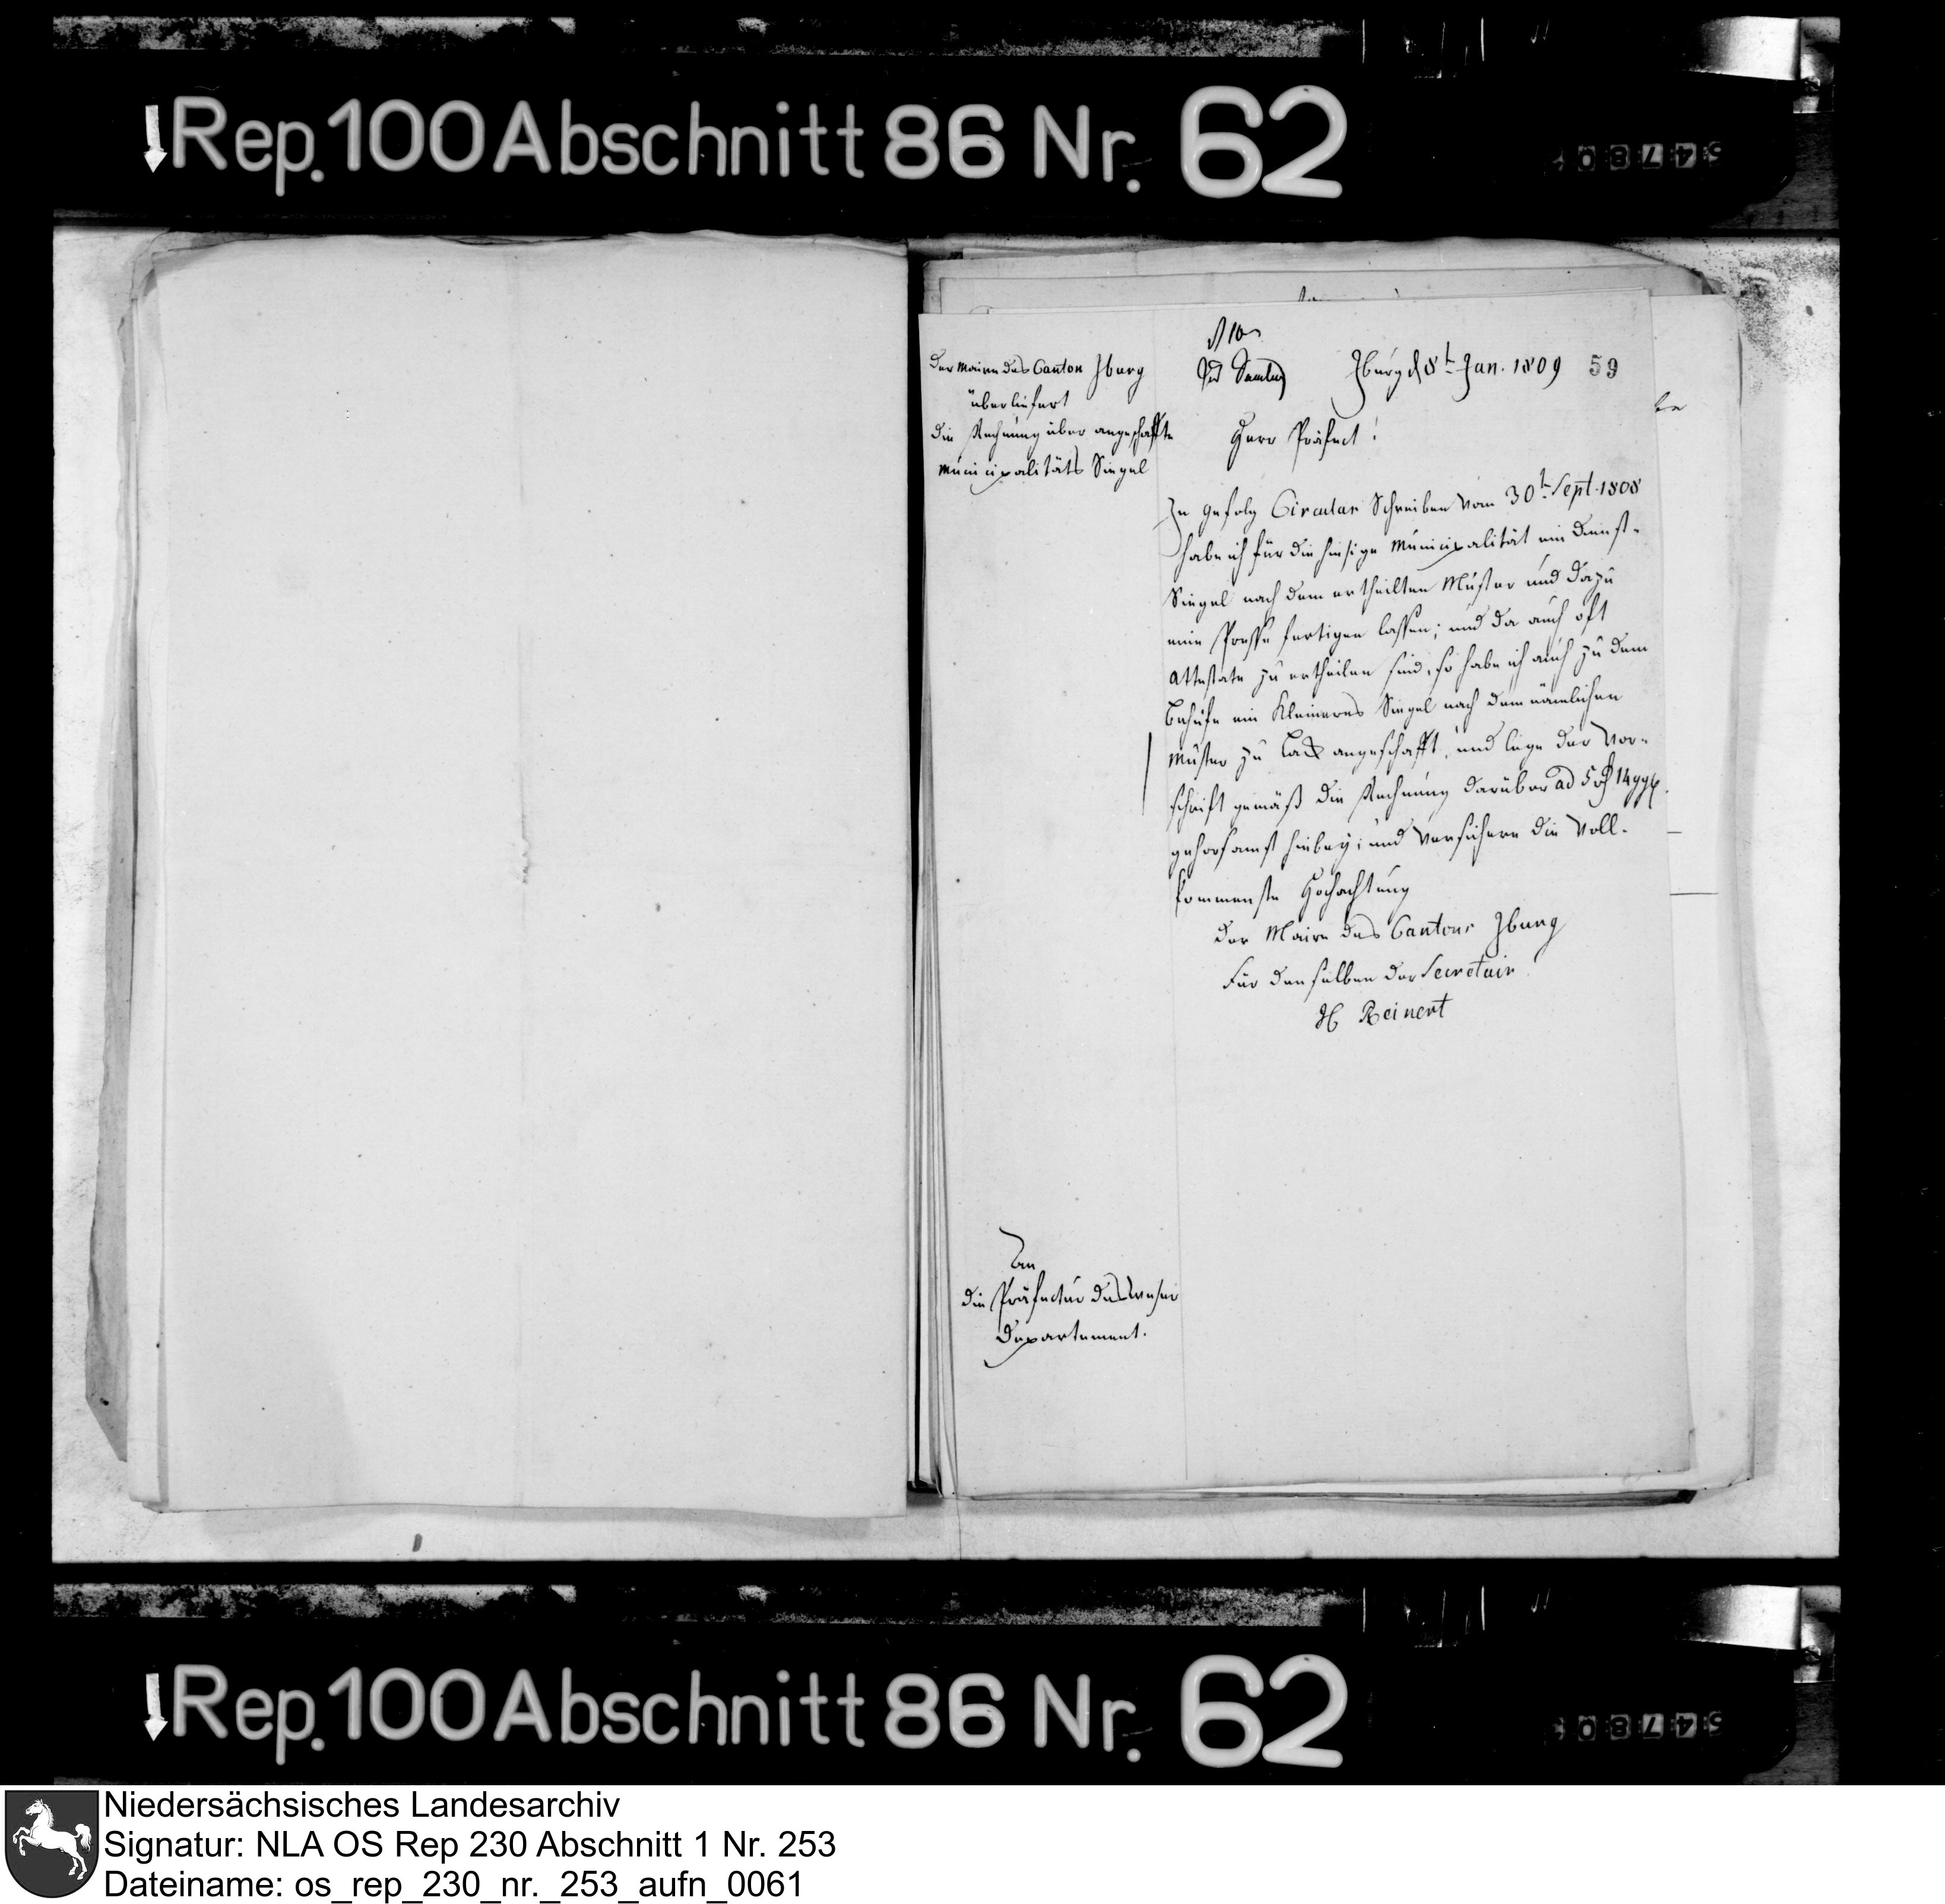 Rep. 100 Abschnitt 86 Nr. 62
59
Der Maire des Canton Iburg
überliefert
die Rechnung über angeschaffte
Municipalitäts Siegel
Iburg d 8t Jan. 1809
Herr Präfect!
In gefolg Circular Schreiben vom 30t Sept. 1808
habe ich für die hiesige Municipalität ein Dienst-
Siegel nach dem ertheilten Muster und dazu
eine Presse fertigen lassen; und da auch oft
Attestate zu ertheilen sind, so habe ich auch zu dem
Behufe ein kleineres Siegel nach dem nämlichen
Muster zu Lack angeschafft, und lege der Vor-
schrift gemäß die Rechnung darüber ad 5 rh 14 ggl.
gehorsamst hiebey; und versichere die voll-
kommenste Hochachtung
Der Maire des Cantons Iburg
Für denselben der Secretair
H Reinert
An
die Präfectur des Weser
Departement.
Rep. 100 Abschnitt 86 Nr. 62
Niedersächsisches Landesarchiv
Signatur: NLA OS Rep 230 Abschnitt 1 Nr. 253
Dateiname: os_rep_230_nr._253_aufn_0061